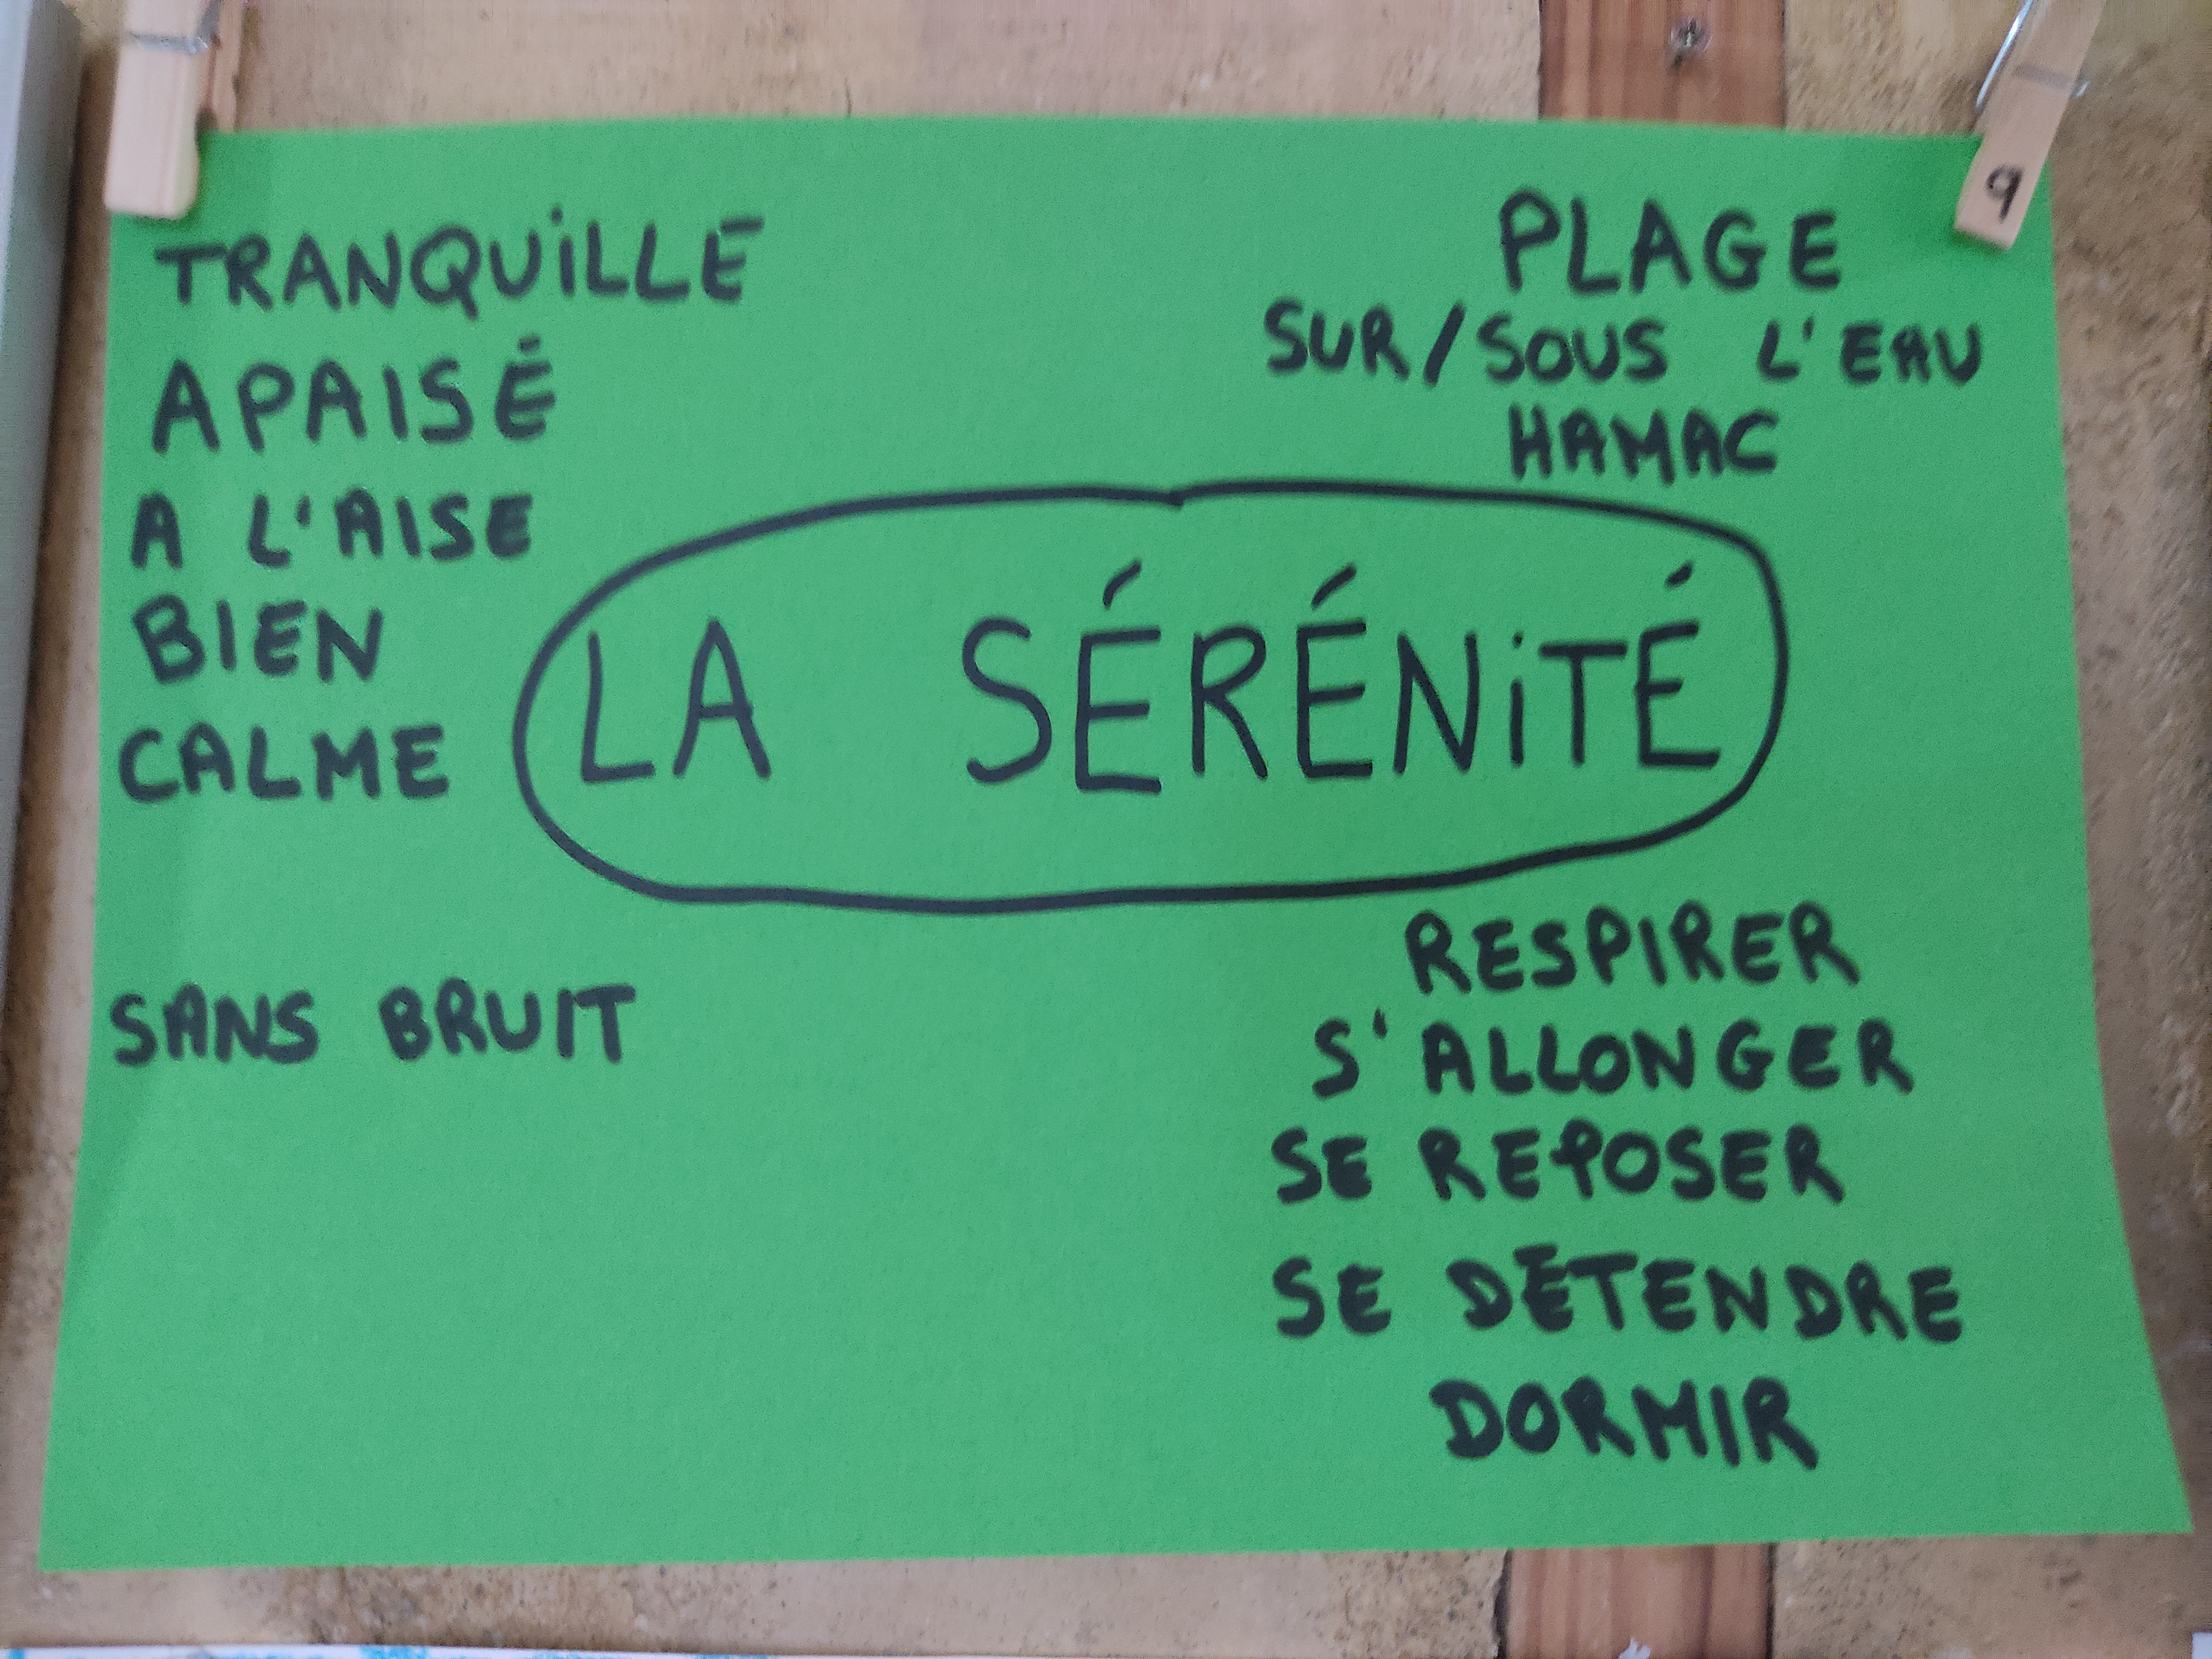 9
TRANQUiLLE
APAISÉ
A L'AISE
BIEN
CALME
SANS BRUIT
PLAGE
SUR/SOUS L'EAU
HAMAC
LA SÉRÉNiTÉ
RESPIRER
S'ALLONGER
SE REPOSER
SE DÉTENDRE
DORMIR